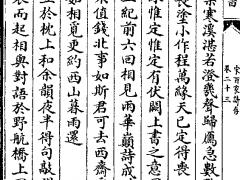 案寒溪湛若澄幾聲歸鴈忽數
長塗小作程萬緣天已定得喪
小惟定惟定有伏闕上書之意
一紀前六回相見兩華巔詩成
來值錢北事如斯君可去西齋
如相覓更約西山暮雨還
至於枕上和余韻夜半得句敲
衰而起相與對語於野航橋上
宋百家詩存
卷二十三